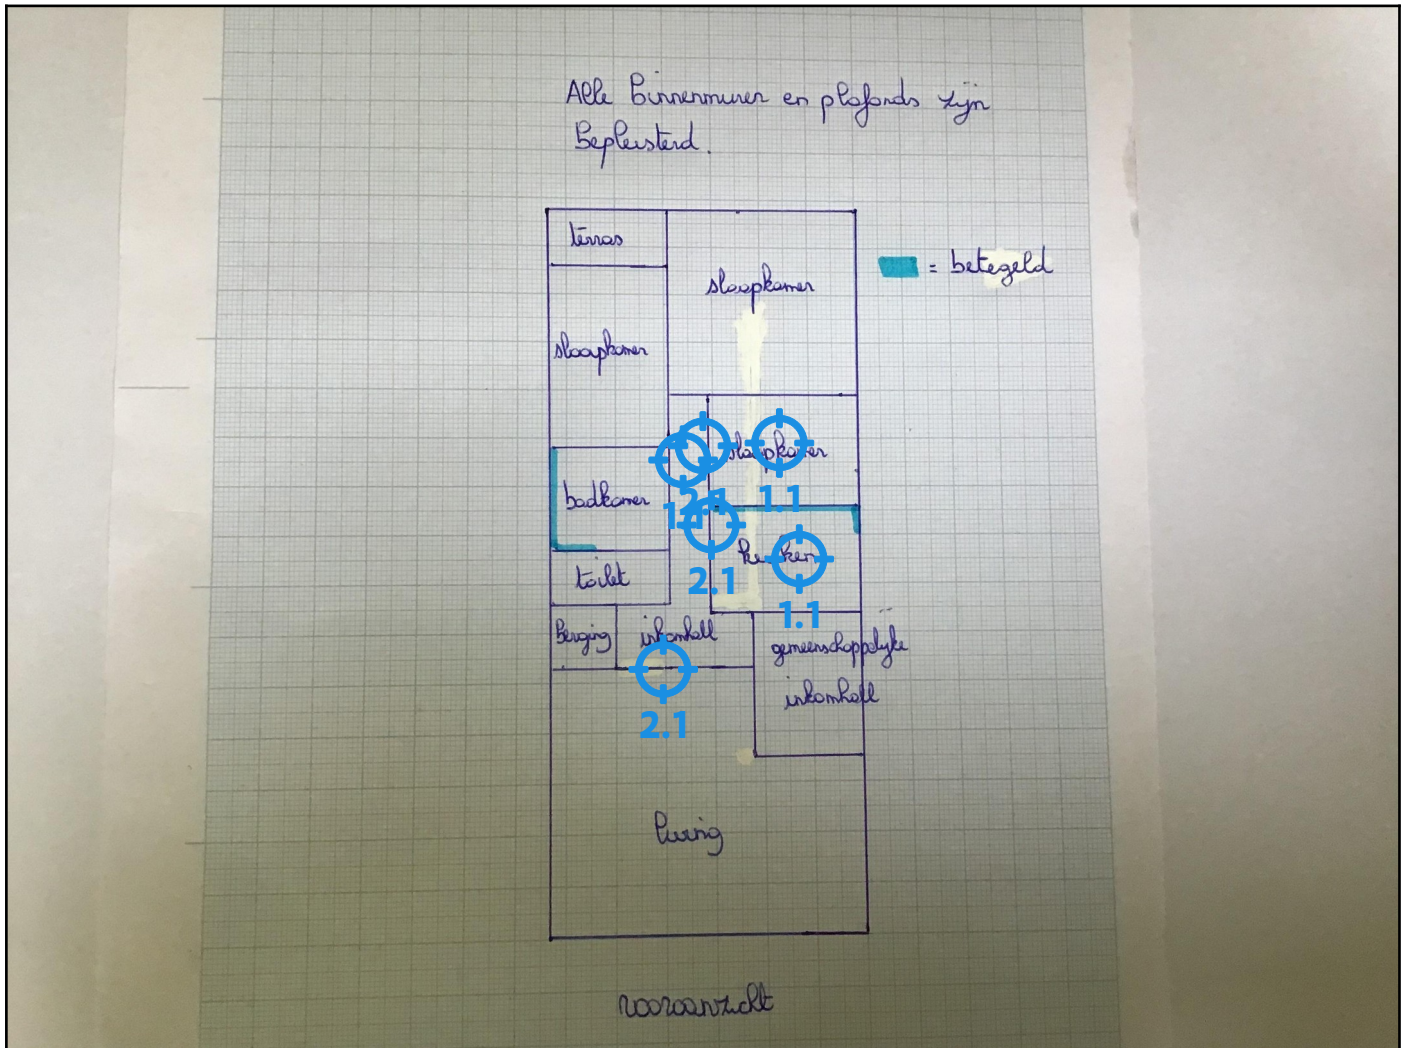 Alle Binnenmuren en plafonds zijn
Bepleisterd.
terras
slaapkamer
= betegeld
slaapkamer
slaapkamer
2.1
1.1
1.1
badkamer
keuken
2.1
toilet
1.1
Berging
inkomhall
gemeenschappelijke
inkomhall
2.1
living
vooraanzicht